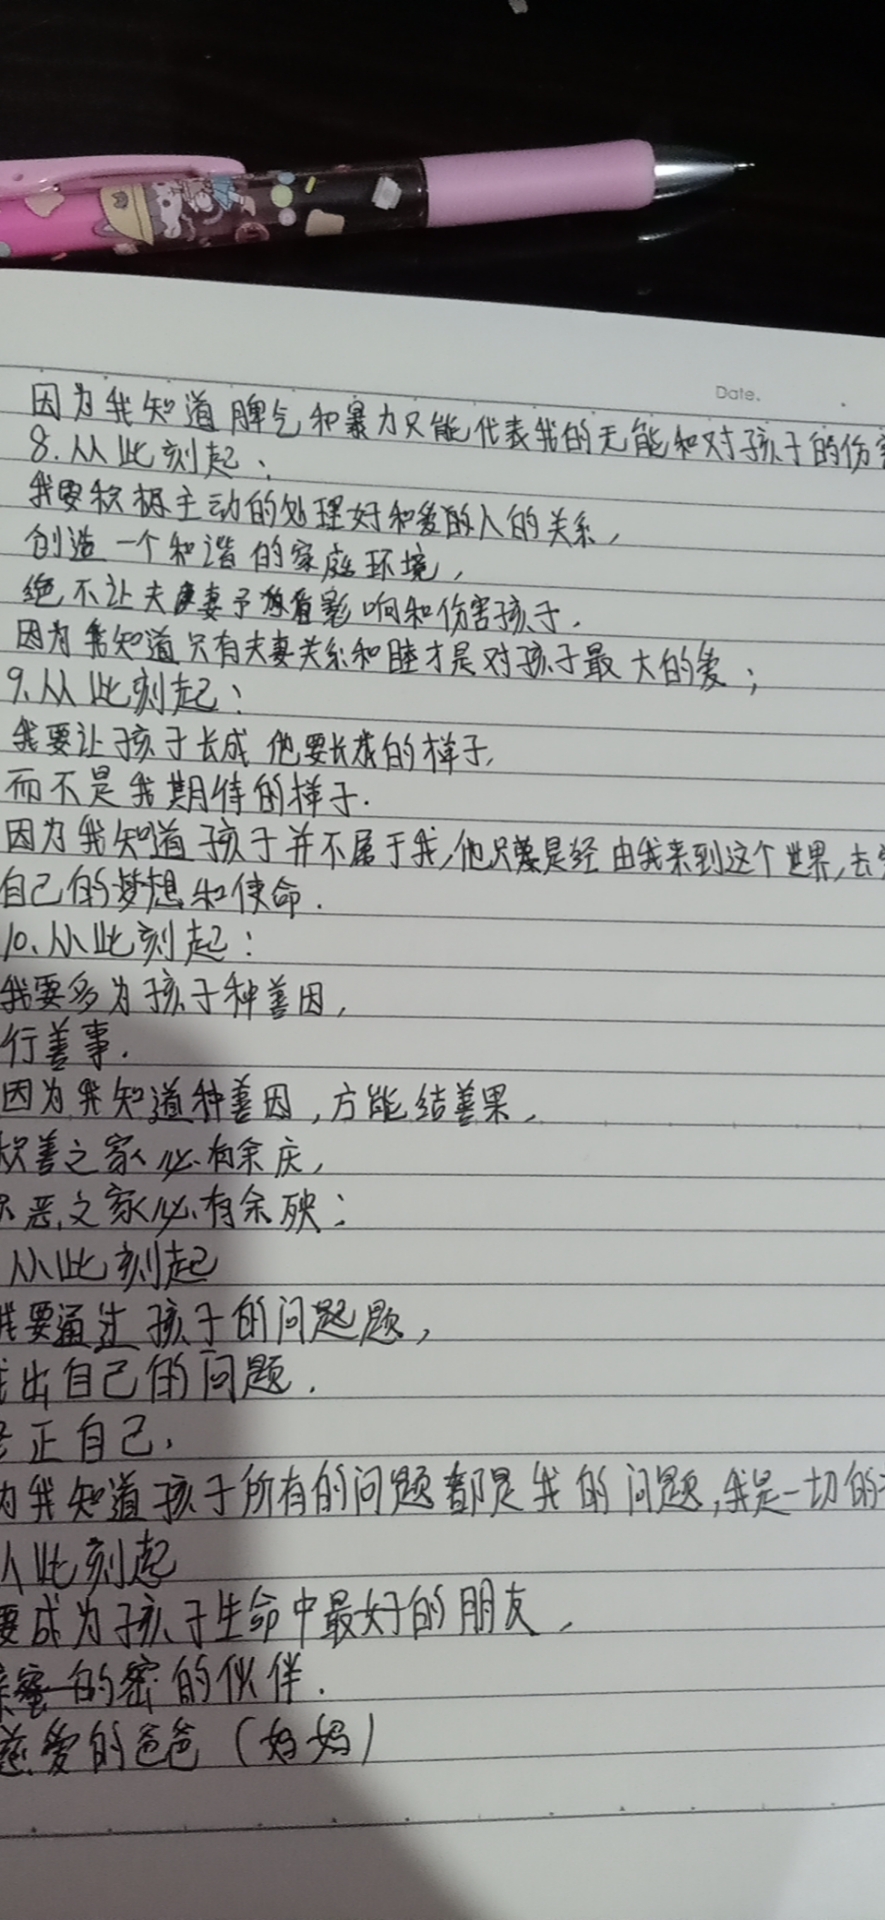 Date.
因为我知道脾气和暴力只能代表我的无能和对孩子的伤害
8.从此刻起：
我要积极主动的处理好和爱的人的关系，
创造一个和谐的家庭环境，
绝不让夫妻矛盾影响和伤害孩子.
因为我知道只有夫妻关系和睦才是对孩子最大的爱；
9.从此刻起：
我要让孩子长成他要长成的样子,
而不是我期待的样子.
因为我知道孩子并不属于我,他只是经由我来到这个世界,去
自己的梦想和使命.
10.从此刻起：
我要多为孩子种善因,
行善事.
因为我知道种善因,方能结善果,
积善之家必有余庆,
恶之家必有余殃:
从此刻起
我要通过孩子的问题,
出自己的问题.
正自己,
为我知道孩子所有的问题都是我的问题,我是一切的
从此刻起
要成为孩子生命中最好的朋友,
密的伙伴.
慈爱的爸爸(妈妈)